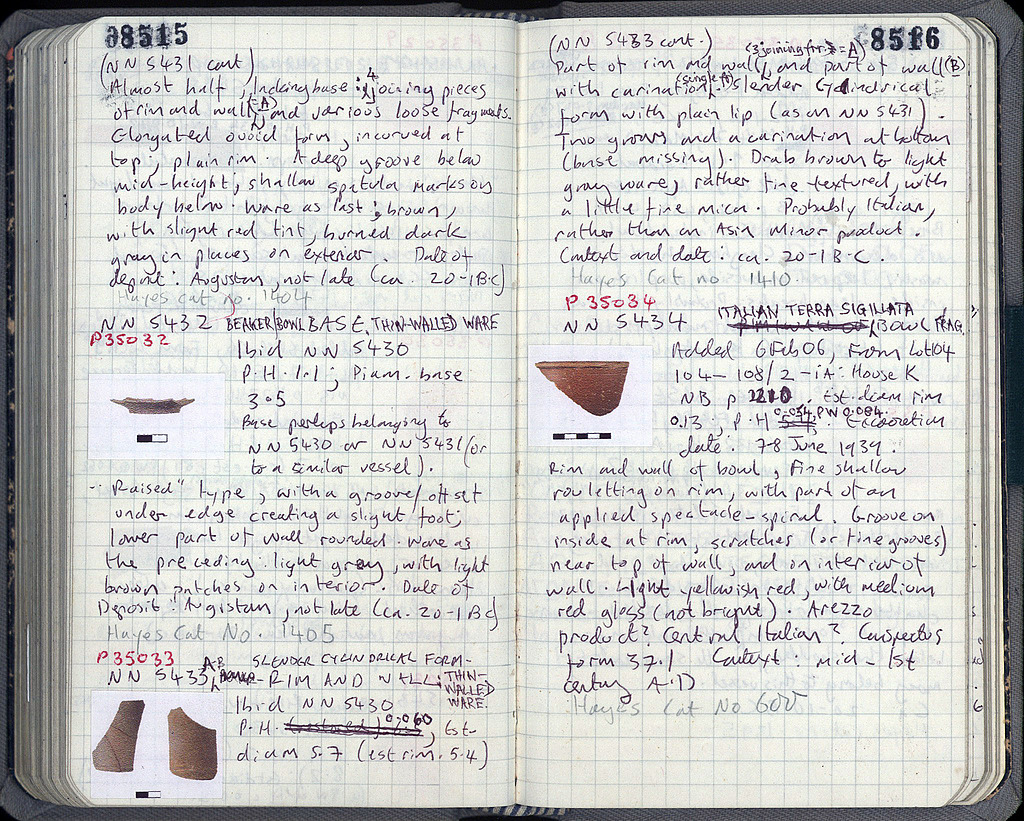 08515
(NN 5431 cont)
Almost half, lacking base: 4 joining pieces
of rim and wall (= A) and various loose fragments.
Elongated ovoid form, incurved at
top; plain rim. A deep groove below
mid-height; shallow spatula marks on
body below. Ware as last; brown,
with slight red tint, burned dark
gray in places on exterior. Date of
deposit: Augustan, not late (ca. 20-1 B.C)
Hayes cat no. 1404
NN 5432 BEAKER/BOWL BASE, THIN-WALLED WARE
P35032
Ibid NN 5430
P.H. 1.1; Diam. base
3.5
Base perhaps belonging to
NN 5430 or NN 5431 (or
to a similar vessel).
"Raised" type, with a groove/offset
under edge creating a slight foot;
lower part of wall rounded. Ware as
the preceding: light gray, with light
brown patches on interior. Date of
Deposit: Augistan, not late (ca. 20-1 BC)
Hayes Cat No. 1405
P35033 SLENDER CYLINDRICAL FORM-
NN 5433 A-B RIM AND WALL: THIN-
WALLED
WARE.
Ibid NN 5430
P.H. 0.060, Est-
diam 5.7 (est rim. 5.4)
08516
(NN 5433 cont.)
Part of rim and wall (3 joining frr = A), and part of wall (B)
with carination (single fr). Slender Cylindrical
form with plain lip (as on NN 5431).
Two grooves and a carination at bottom
(base missing). Drab brown to light
gray ware, rather fine-textured, with
a little fine mica. Probably Italian,
rather than an Asia Minor product.
Context and date: ca. 20-1 B.C
Hayes Cat no 1410.
P 35034
ITALIAN TERRA SIGILLATA
NN 5434 BOWL FRAG.
Added 6 Feb 06, From Lot 104
104-108/2-iA: House K
NB p 1210. Est. diam rim
0.13, P.H 0.054, PW 0.084. Excavation
date: 7-8 June 1939.
Rim and wall of bowl, Fine shallow
rouletting on rim, with part of an
applied spectacle-spiral. Groove on
inside at rim, scratches (or fine grooves)
near top of wall, and on interior of
wall. Light yellowish red, with medium
red gloss (not bright). Arezzo
product? Central Italian? Conspectus
form 37.1 Context: mid-1st
century A.D
Hayes Cat No 600